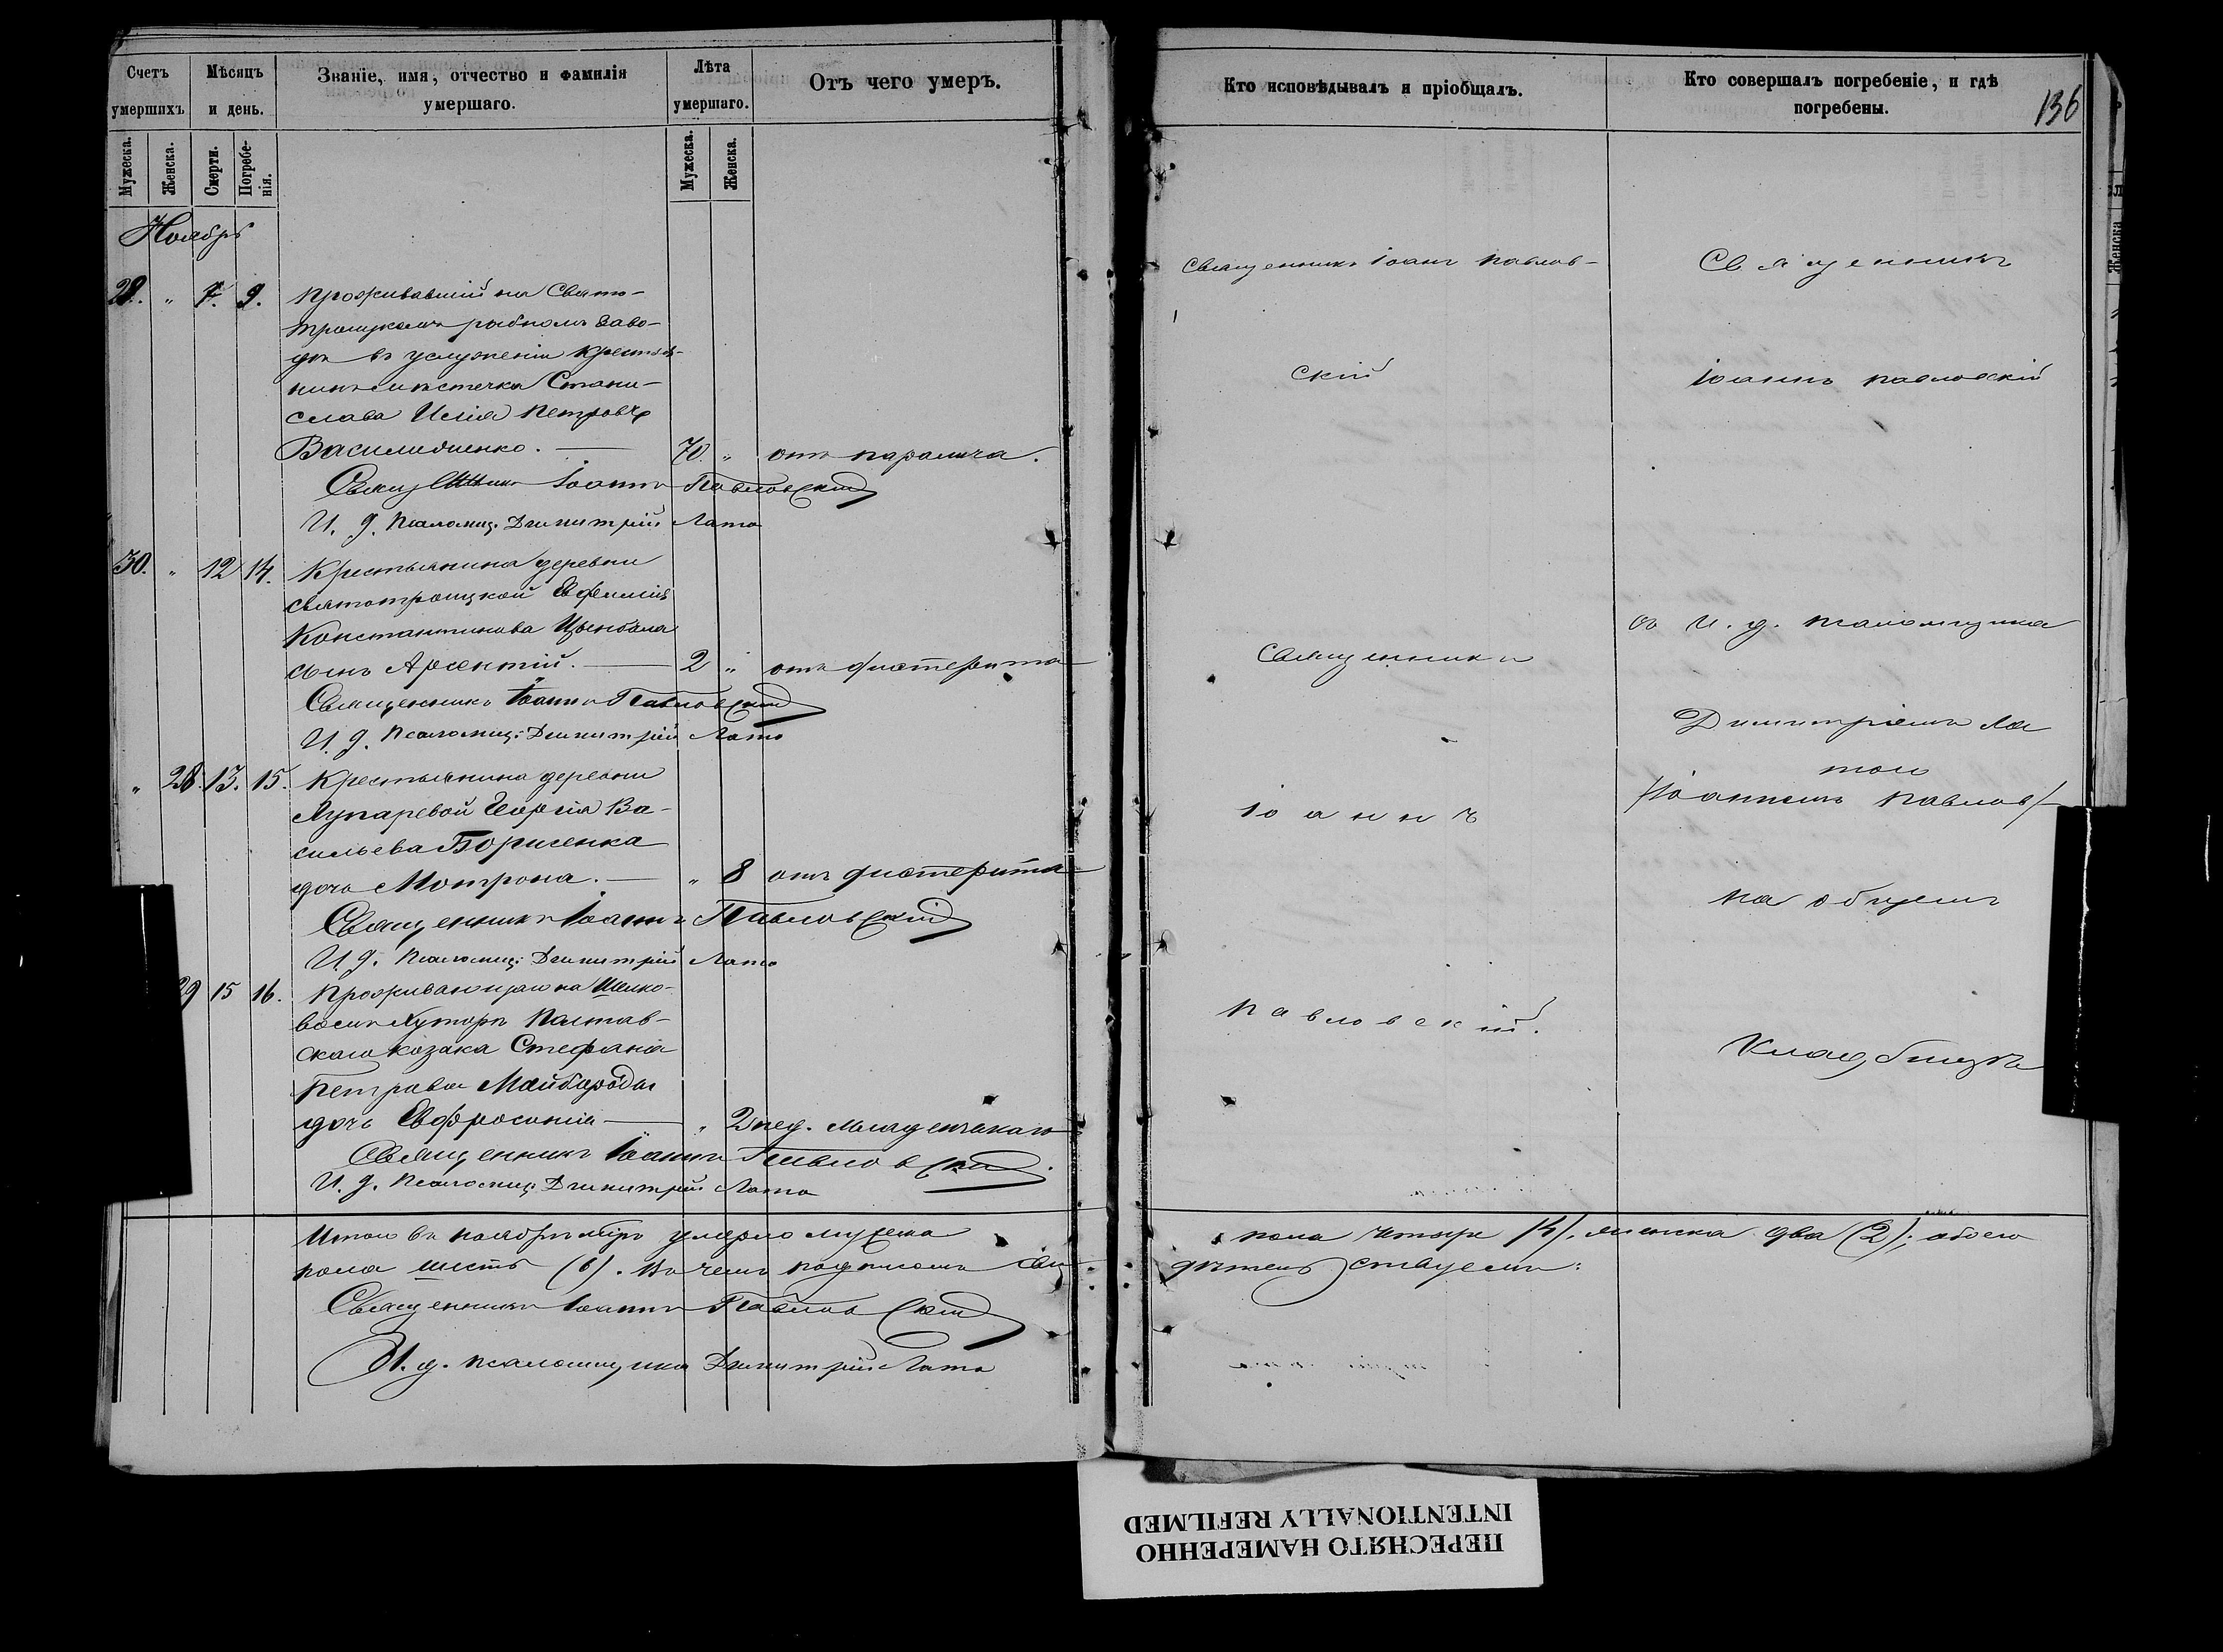 Счетъ умершихъ
Мѣсяцъ и день.
Званіе, имя, отчество и фамилія умершаго.
Лѣта умершаго.
Отъ чего умеръ.
Мужеска.
Женска.
Смерти.
Погребенія.
Мужеска.
Женска.
Ноябрь
9.
Проживавшій на Свято-
троицкомъ рыбномъ заво-
дѣ въ услуженіи крестья-
нинъ мѣстечка Стани-
слава Илія Петровъ
70. „ отъ паралича.
Священникъ Іоаннъ Павловскій
И. д. псаломщ. Димитрій Лата
30. „ 12 14. Крестьянина деревни
Святотроицкой Евфимія
Константинова Цымбала
сынъ Арсентій. — 2 „ отъ дифтерита
Священникъ Іоаннъ Павловскій
И. д. псаломщ: Димитрій Лата
„ 28. 13. 15. Крестьянина деревни
Лупаревой Георгія Ва-
сильева Борисенка
дочь Мотрона. — „ 8 отъ дифтерита
Священникъ Іоаннъ Павловскій
И. д. псаломщ: Димитрій Лата
29 15 16. Проживающаго на
хуторѣ Полтав-
скаго козака Стефана
Петрова Майбороды
дочь Евфросинія — „ 2 нед. младенческаго
Священникъ Іоаннъ Павловскій.
И. д. псаломщ: Димитрій Лата
Итого въ ноябрѣ мѣсяцѣ умерло мужеска
пола шесть (6). Въ чемъ подписомъ сви-
Священникъ Іоаннъ Павловскій
И. д. псаломщика Димитрій Лата
Кто исповѣдывалъ и пріобщалъ.
Кто совершалъ погребеніе, и гдѣ погребены.
136
Священникъ Іоаннъ Павлов-
скій
Священникъ
Іоаннъ
Павловскій.
Священникъ
Іоаннъ Павловскій
съ И. д. псаломщика
Димитріемъ Ла
тою
/Іоанномъ Павлов/
на общемъ
кладбищѣ
пола четыре (4), женска два (2); обоего
дѣтельствуемъ:
Женска
ПЕРЕСНЯТО НАМЕРЕННО
INTENTIONALLY REFILMED